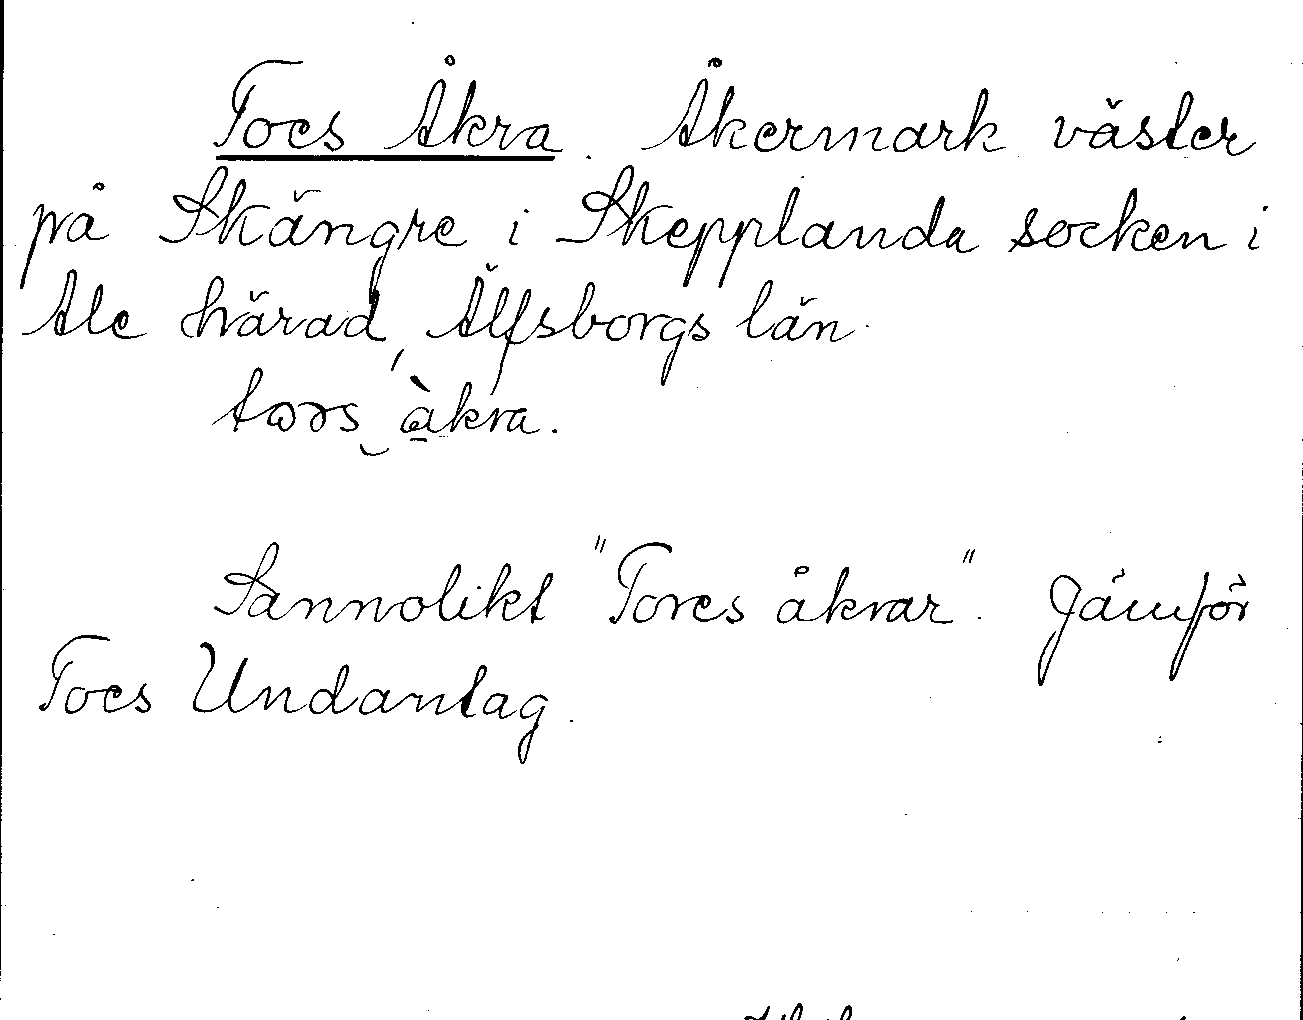 Toes Åkra. Åkermark väster
på Skängre i Skepplanda socken i
Ale härad, Älfsborgs län.
Sannolikt "Tores åkrar". Jämför
Toes Undantag.